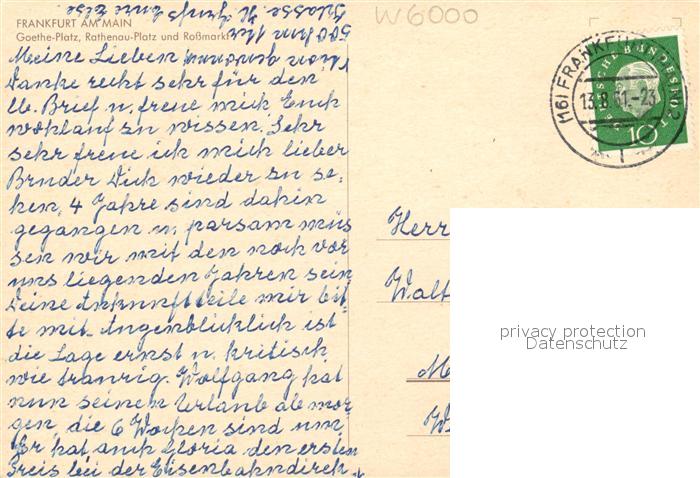 W6000
FRANKFURT AM MAIN
Goethe-Platz, Rathenau-Platz und Roßmarkt
(16) FRANKFURT
13.8.61.-23
DEUTSCHE BUNDESPOST
10
Meine Lieben
Danke recht sehr für den
lb. Brief u. freue mich Euch
wohlauf zu wissen. Sehr
sehr freue ich mich lieber
Bruder Dich wieder zu se-
hen, 4 Jahre sind dahin
gegangen u. parsam müs
sen wir mit den noch vor
uns liegenden Jahren sein
Deine Ankunft teile mir bit-
te mit. Augenblicklich ist
die Lage ernst u. kritisch
wie traurig. Wolfgang hat
nun seinem Urlaub ab mor
gen, die 6 Wochen sind um,
Er hat auch Gloria den ersten
Preis bei der Eisenbahndirek
500 km
Klasse. H. Eure Else.
Herr
Walt
privacy protection
Datenschutz